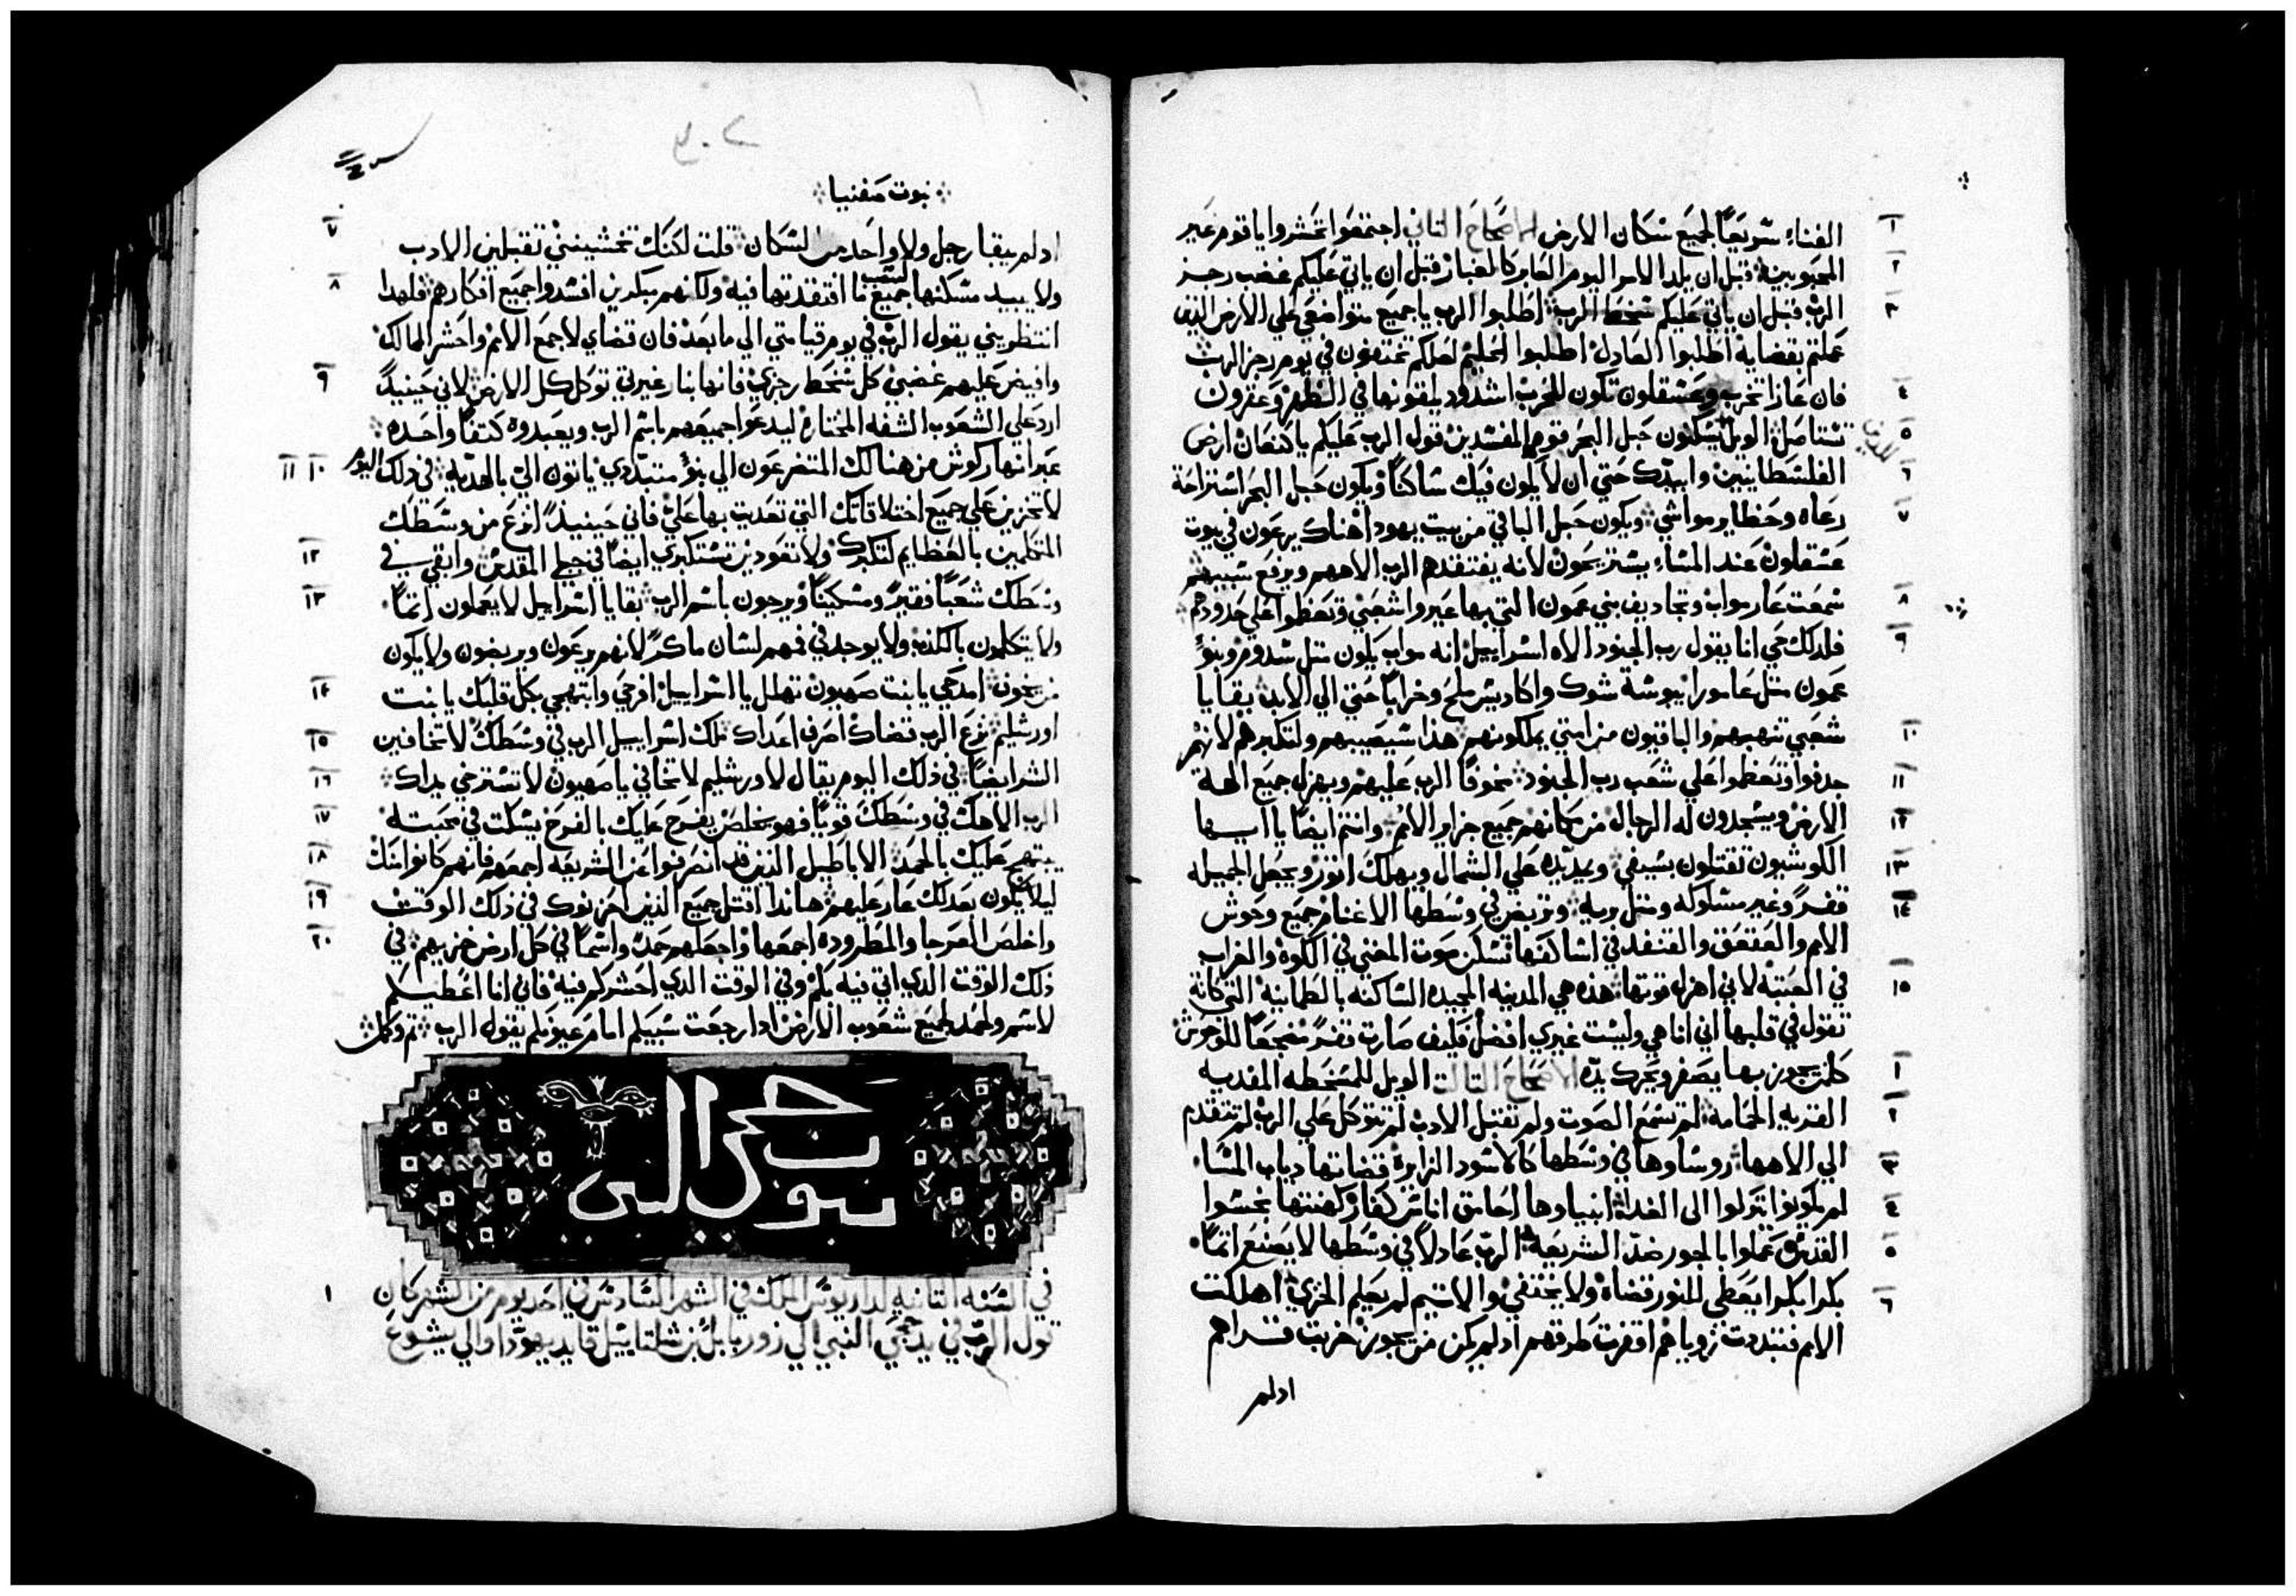 الفناء سريعًا لجميع سكان الارض الاصحاح التاني اجتمعوا تحشروا يا قوم غير
المحبوبين قبل ان يلد الامر اليوم العابر كالغبار قبل ان ياتي عليكم غضب رجز
الرب قبل ان ياتي عليكم سخط الرب اطلبوا الرب يا جميع متواضعي علي الارض الذين
عملتم بقضايه اطلبوا العادل اطلبوا الحليم لعلكم تختفون في يوم رجز الرب
فان غازا تخرب وعسقلون تكون للخرب اشدود يلقونها في الظهر وعقرون
تستاصل الويل يسكنون حبل البحر قوم المفسدين قول الرب عليكم يا كنعان ارض
الفلسطانيين وابيدك حتي ان لا يكون فيك ساكنًا ويكون حبل البحر استراحة
رعاه وحظاير مواشي ويكون حبل الباقي من بيت يهودا هناك يرعون في بيوت
عسقلون عند المساء يستريحون لانه يفتقدهم الرب الاههم ويرفع سبيهم
سمعت عار مواب وتجاديف بني عمون التي بها عيروا شعبي وتعظموا علي حدودهم
فلدلك حي انا يقول رب الجنود الاه اسراييل انه مواب يكون متل سدوم وبنو
عمون متل عامورا يبوسة شوك واكاديس ملح وخرابًا حتي الي الابد بقايا
شعبي تنهبهم والباقيون من امتي يملكونهم هذا سيصيبهم ولتكبرهم لانهم
جدفوا وتعظموا علي شعب رب الجنود مخوفًا الرب عليهم ويهزل جميع الهة
الارض ويسجدون له الرجال من مكانهم جميع جزاير الامم وانتم ايضًا يا ايها
الكوشيون تقتلون بسيفي ويمد يده علي الشمال ويهلك اتور ويجعل الجميله
قفرً وغير مسلوكه ومتل بريه وتربض في وسطها الاغنام جميع وحوش
الامم والعقعق والقنفد في اساكفها تسكن صوت المغني في الكوه والغراب
في العتبة لاني اهزل قوتها هذه هي المدينه المجيده الساكنه بالطمانينه التي كانة
تقول في قلبها اني انا هي وليست غيري افضل فكيف صارت قفرً مضجعًا للوحوش
كلمن يجوز بها يصفر ويحرك يده الاصحاح التالت الويل للمسخطه المفديه
القريه الحمامه لم تسمع الصوت ولم تقتبل الادب لم تتوكل علي الرب لم تتقدم
الي الاهها روساوها في وسطها كالاسود الزايرة قضاتها دياب المسا
لم يكونوا يتركوا الي الغداة انبياوها احامق اناس كفار كهنتها نجسوا
القدس عملوا بالجور ضد الشريعة الرب عادلًا في وسطها لا يصنع اتمًا
بكرا بكرا يعطي للنور قضاه ولا يختفي والاتيم لم يعلم الخزي اهلكت
الامم فتبددت زوياهم اقفرت طرقهم اد لم يكن من يجوز خربت قراهم
اد لم
نبوت صفنيا
اد لم يبقا رجل ولا واحد من السكان قلت لكنك تخشينني تقبلين الادب
ولا يبيد مسكنها جميع ما افتقدتها فيه ولكنهم مبكرين افسدوا جميع افكارهم فلهدا
انتظريني يقول الرب في يوم قيامتي الي ما بعد فان قضاي لاجمع الامم واحشر الممالك
وافيض عليهم غضبي كل سخط رجزي فانها بنار غيرتي توكل كل الارض لاني حينيدً
ارد علي الشعوب الشفه المختاره ليدعوا جميعهم باسم الرب ويعبدوه كتفًا واحده
عبر انهار كوش من هنالك المتضرعون الي بنو متبددي ياتون الي بالهديه في دلك اليوم
لا تخزين علي جميع اختلاقاتك التي تعديت بها علي فاني حينيدً انزع من وسطك
المتكلمين بالعظايم لتكبرك ولا تعودين تستكبري ايضًا في جبلي المقدس وابقي في
وسطك شعبًا فقيرً ومسكينًا ويرجون باسم الرب بقايا اسراييل لا يعملون اتمًا
ولا يتكلمون بالكذب ولا يوجد في فمهم لسان ماكرً لانهم يرعون ويربضون ولا يكون
من يخوف امدحي يا بنت صهيون تهلل يا اسراييل افرحي وابتهجي بكل قلبك يا بنت
اورشليم نزع الرب قضاك اصرف اعداك ملك اسراييل الرب في وسطك لا تخافين
الشر ايضًا في ذلك اليوم يقال لاورشليم لا تخافي يا صهيون لا تسترخي يداك
الرب الاهك في وسطك قويًا فهو يخلص يفرح عليك بالفرح يسكت في محبته
يبتهج عليك بالحمد الاباطيل الذين قد انصرفوا عن الشريعه اجمعهم فانهم كانوا منك
ليلا يكون بعد لك عار عليهم هاندا اقتل جميع الذين احزنوك في ذلك الوقت
واخلص العرجا والمطروده اجمعها واجعلهم حمدً واسمًا في كل ارض خزيهم في
ذلك الوقت الدي اتي فيه بكم وفي الوقت الدي احشركم فيه فاني انا اعطيكم
لاسم ولحمد لجميع شعوب الارض ادا رجعت سبيكم امام عيونكم يقول الرب تم وكمل
نبوت حجي النبي
في السنه التانيه لداريوس الملك في الشهر السادس في احد يوم من الشهر كان
قول الرب في يد حجي النبي الي زوربابل بن شلتاييل قايد يهودا والي يشوع